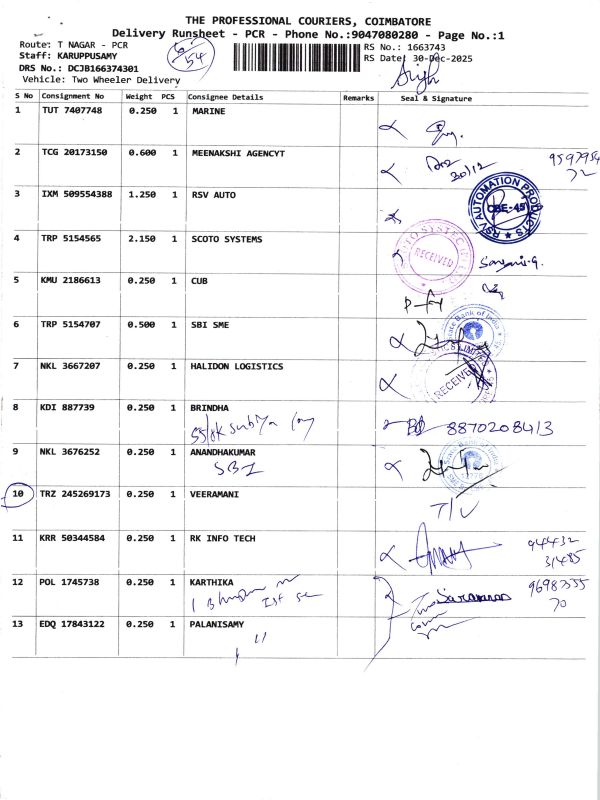 THE PROFESSIONAL COURIERS, COIMBATORE
Delivery Runsheet - PCR - Phone No.:9047080280 - Page No.:1
Route: T NAGAR - PCR
RS No.: 1663743
Staff: KARUPPUSAMY
RS Date: 30-Dec-2025
DRS No.: DCJB166374301
Vehicle: Two Wheeler Delivery
54
S No Consignment No Weight PCS Consignee Details Remarks Seal & Signature
1 TUT 7407748 0.250 1 MARINE
2 TCG 20173150 0.600 1 MEENAKSHI AGENCYT
30/12
72
3 IXM 509554388 1.250 1 RSV AUTO
RSV AUTOMATION PRODUCTS
CBE-45
4 TRP 5154565 2.150 1 SCOTO SYSTEMS
RECEIVED
5 KMU 2186613 0.250 1 CUB
6 TRP 5154707 0.500 1 SBI SME
7 NKL 3667207 0.250 1 HALIDON LOGISTICS
RECEIVED
8 KDI 887739 0.250 1 BRINDHA
8870208413
9 NKL 3676252 0.250 1 ANANDHAKUMAR
SBI
10 TRZ 245269173 0.250 1 VEERAMANI
11 KRR 50344584 0.250 1 RK INFO TECH
94432
31485
12 POL 1745738 0.250 1 KARTHIKA
70
13 EDQ 17843122 0.250 1 PALANISAMY